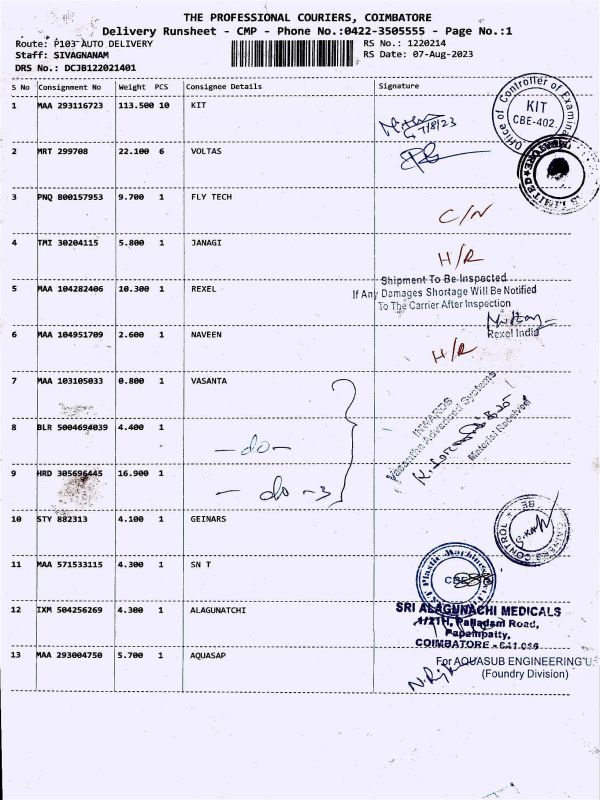 THE PROFESSIONAL COURIERS, COIMBATORE
Delivery Runsheet - CMP - Phone No.:0422-3505555 - Page No.:1
Route: P103 AUTO DELIVERY
RS No.: 1220214
Staff: SIVAGNANAM
RS Date: 07-Aug-2023
DRS No.: DCJB122021401
S No Consignment No Weight PCS Consignee Details Signature
1 MAA 293116723 113.500 10 KIT
7/8/23
Office of Controller of Examina
KIT
CBE-402.
2 MRT 299708 22.100 6 VOLTAS
LIMITED
3 PNQ 800157953 9.700 1 FLY TECH
C/N
4 TMI 30204115 5.800 1 JANAGI
H/R
Shipment To Be Inspected
5 MAA 104282406 10.300 1 REXEL
If Any Damages Shortage Will Be Notified
To The Carrier After Inspection
6 MAA 104951709 2.600 1 NAVEEN
Rexel India
H/R
7 MAA 103105033 0.800 1 VASANTA
INWARDS
Vasantha Advanced Systems
Material Received
8 BLR 5004694039 4.400 1
-do-
9 HRD 305696445 16.900 1
- do -3
10 STY 882313 4.100 1 GEINARS
CONTROL
11 MAA 571533115 4.300 1 SN T
Plastic Machines
CBE
12 IXM 504256269 4.300 1 ALAGUNATCHI
SRI ALAGUNACHI MEDICALS
1/21H, Palladam Road,
Papampatty,
COIMBATORE - 641 016
13 MAA 293004750 5.700 1 AQUASAP
For AQUASUB ENGINEERING U.
(Foundry Division)